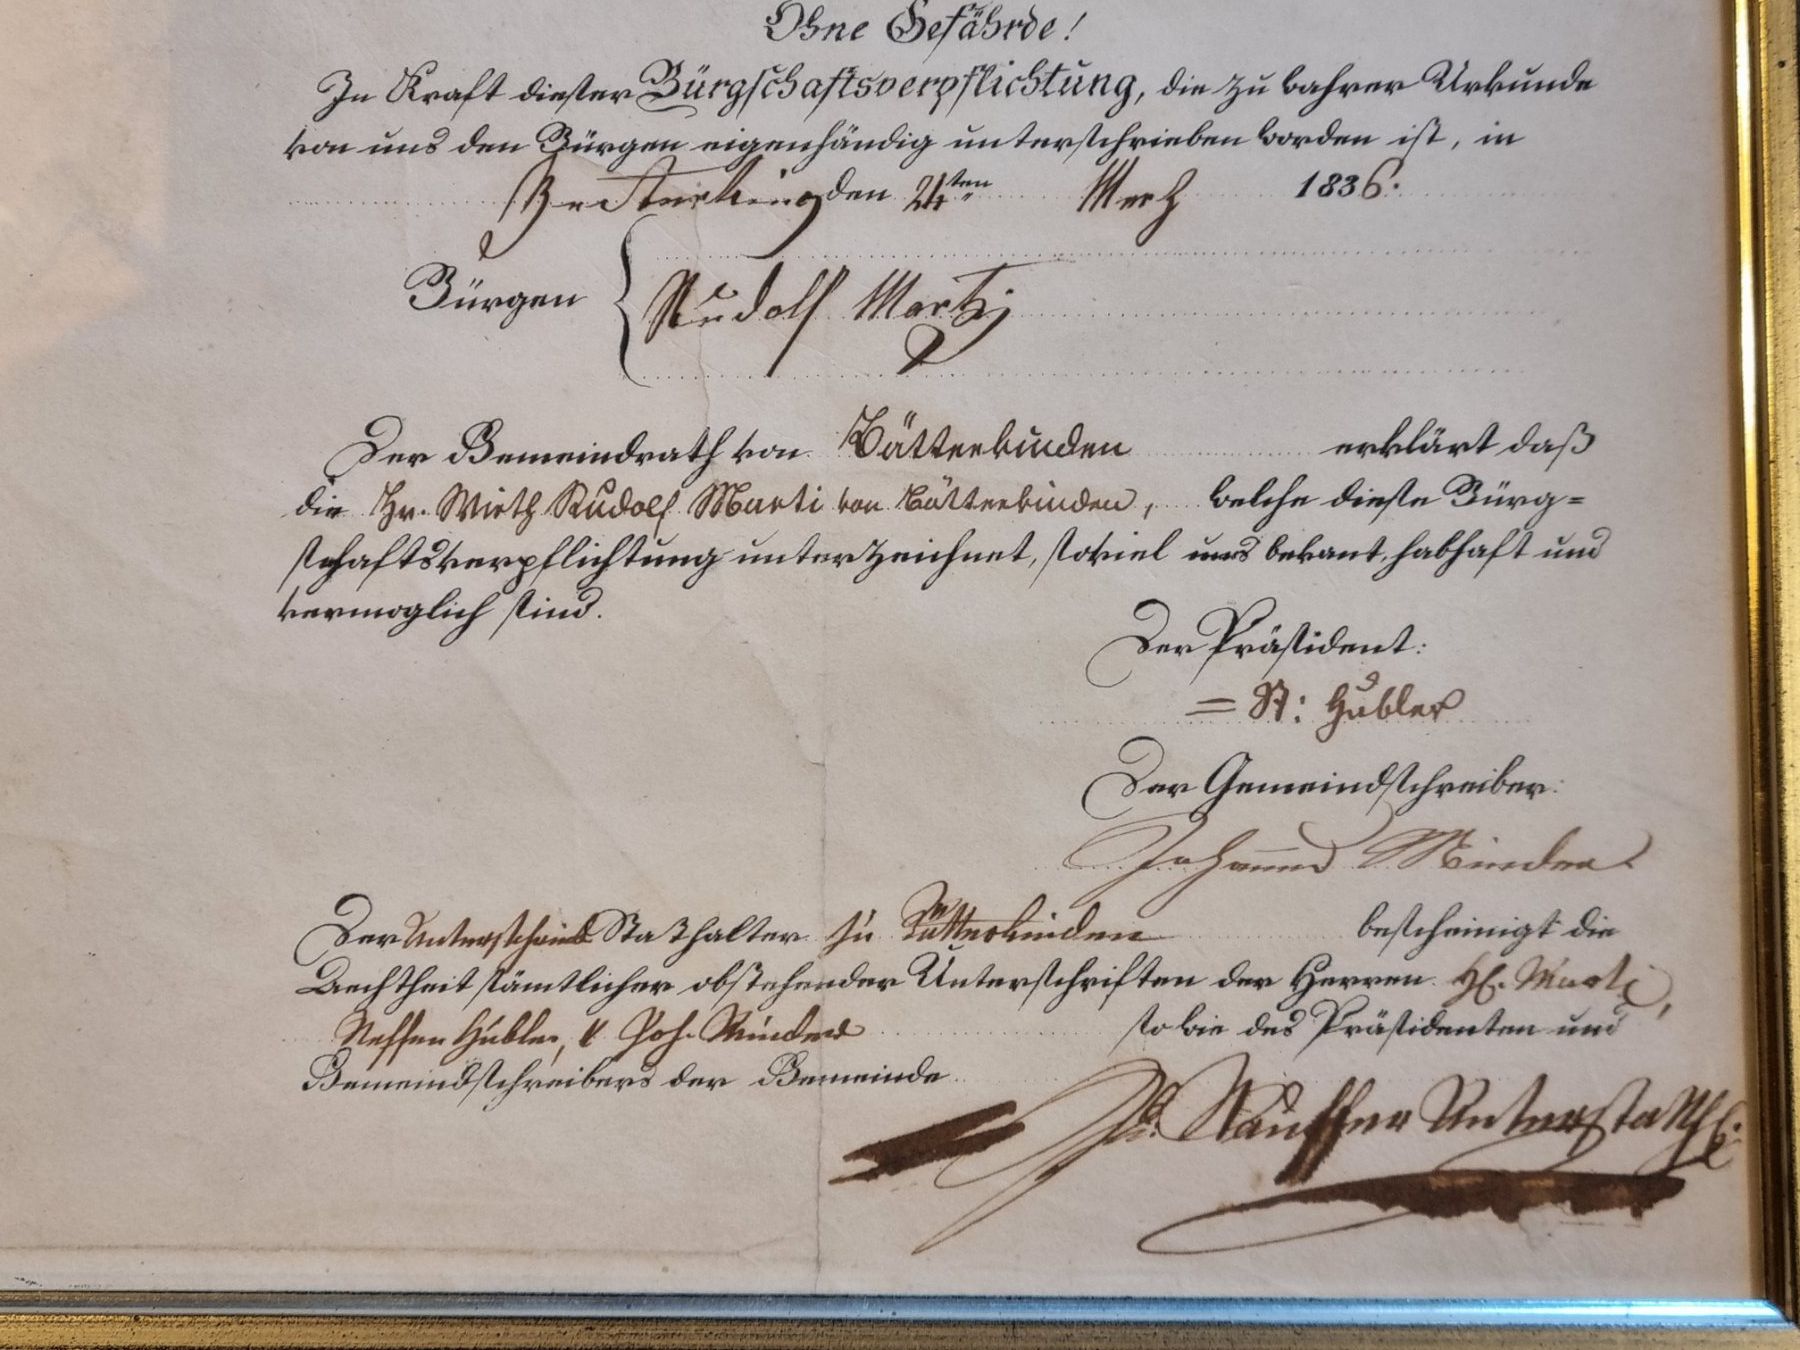 Ohne Gefährde!
In Kraft dieser Bürgschaftsverpflichtung, die zu wahrer Urkunde
von uns den Bürgen eigenhändig unterschrieben worden ist, in
den 24ten Merz 1836.
Bürgen
Rudolf Marti
Der Gemeindrath von Bätterkinden erklärt daß
die Hr. Wirth Rudolf Marti von Bätterkinden, welche diese Bürg=
schaftsverpflichtung unterzeichnet, soviel uns bekant, habhaft und
vermoglich sind.
Der Präsident:
= St: Hubler
Der Gemeindschreiber:
Johannes Minder
Der Unterschrieb Stathalter zu Bätterkinden bescheinigt die
Aechtheit sämtlicher obstehender Unterschriften der Herren Marti,
Steffen Hubler, & Joh. Minder sowie des Präsidenten und
Gemeindschreibers der Gemeinde
Unterstatth.